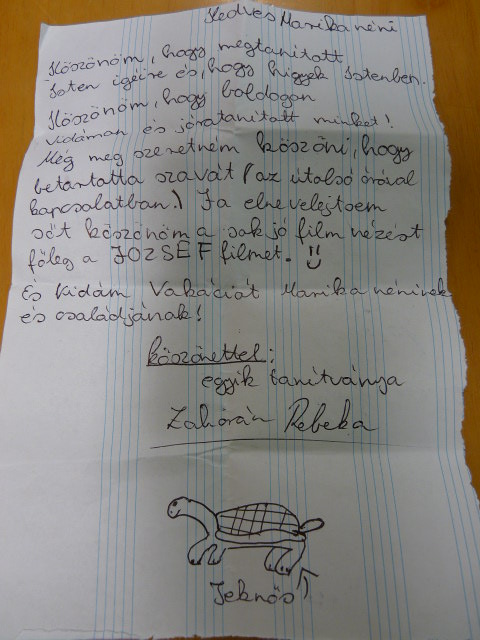 Kedves Marika néni
Köszönöm, hogy megtanított
Isten igéire és, hogy higyek Istenben.
Köszönöm, hogy boldogan
vidáman és jóratanított minket!
Még meg szeretném köszöni, hogy
betartatta szavát (az utolsó órával
kapcsolatban.) Ja elnevelejtsem
sőt köszönöm a sok jó film nézést
főleg a JOZSEF filmet.
És Vidám Vakációt Marika néninek
és családjának!
köszönettel:
egyik tanítványa
Zahorán Rebeka
Teknős